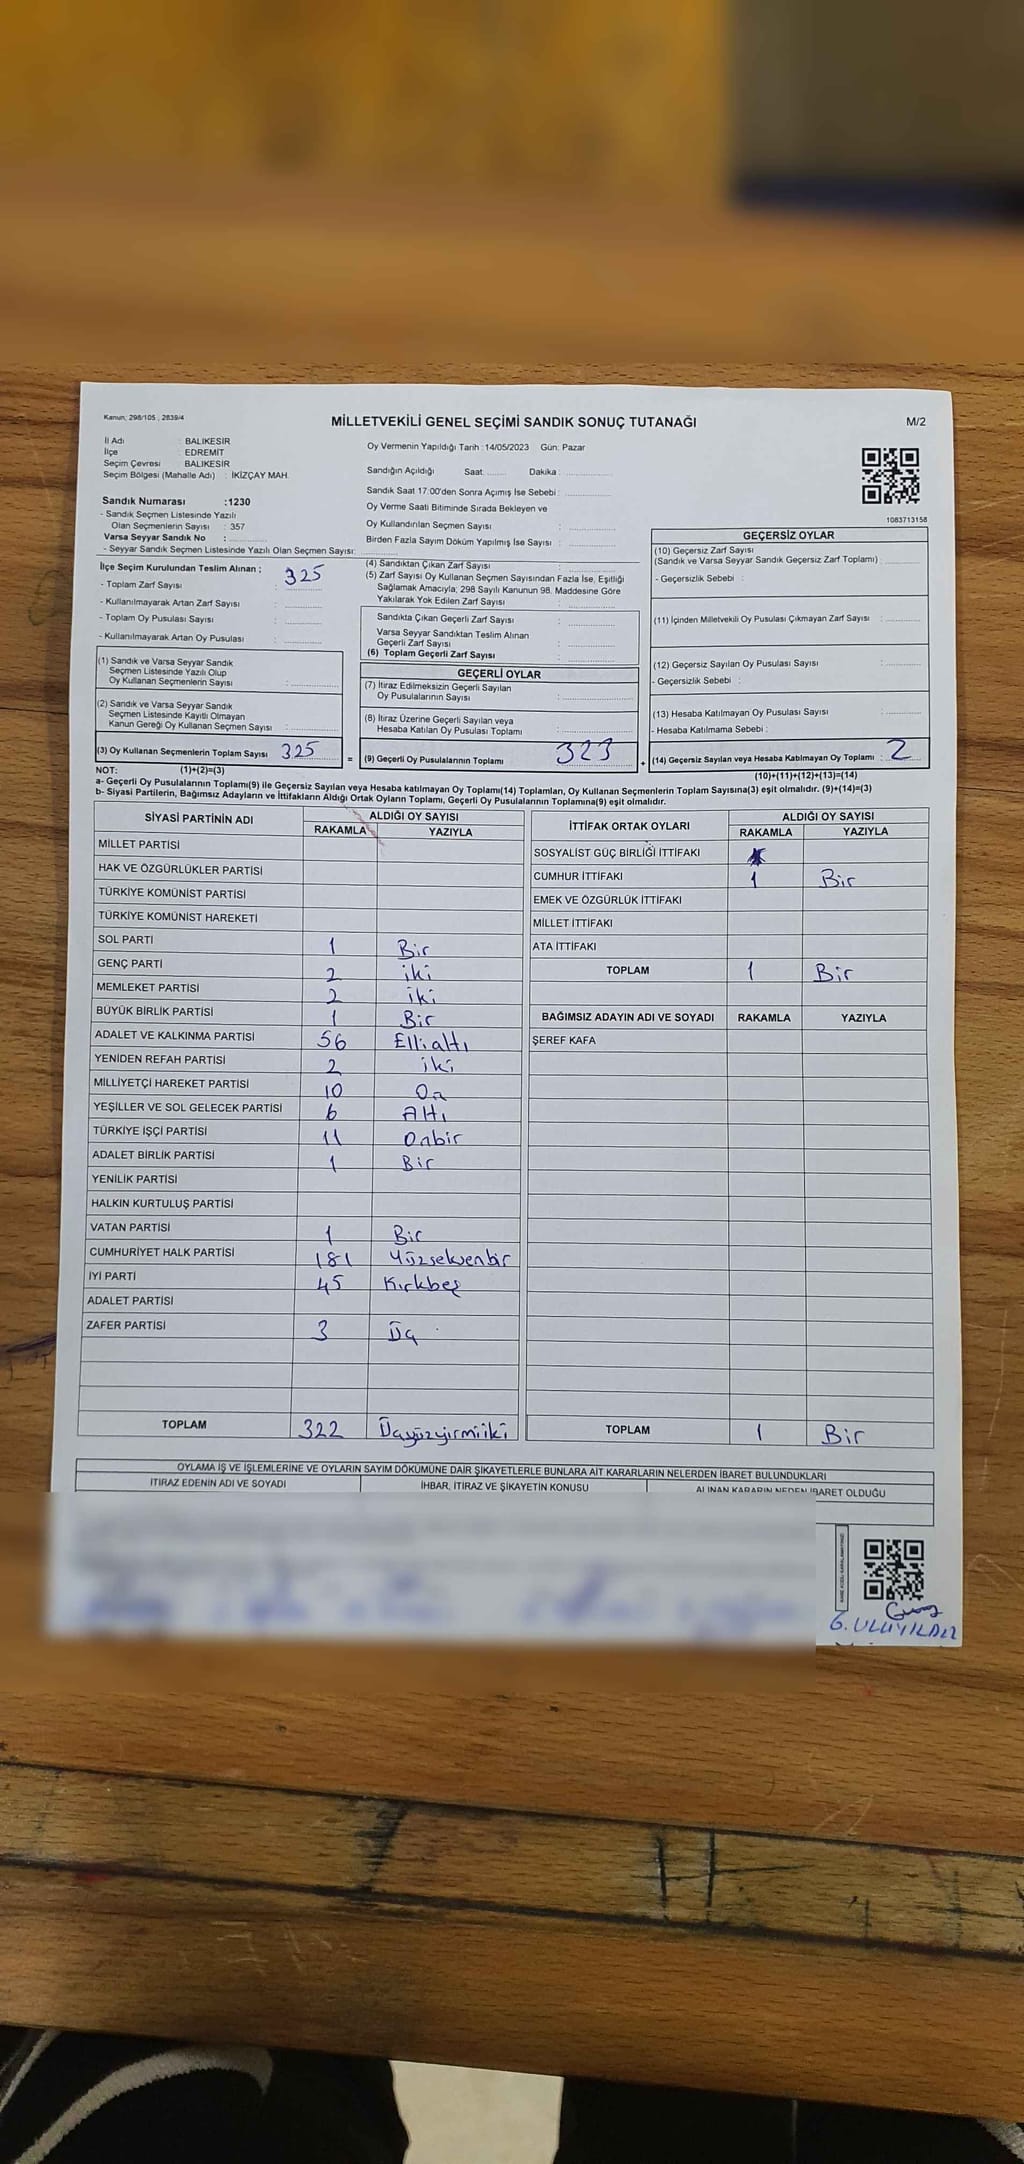 Kanun: 298/105 , 2839/4
MİLLETVEKİLİ GENEL SEÇİMİ SANDIK SONUÇ TUTANAĞI
M/2
İl Adı : BALIKESİR
İlçe : EDREMİT
Seçim Çevresi : BALIKESİR
Seçim Bölgesi (Mahalle Adı) : İKİZÇAY MAH.
Sandık Numarası :1230
- Sandık Seçmen Listesinde Yazılı
Olan Seçmenlerin Sayısı : 357
Varsa Seyyar Sandık No :
- Seyyar Sandık Seçmen Listesinde Yazılı Olan Seçmen Sayısı:
Oy Vermenin Yapıldığı Tarih : 14/05/2023 Gün: Pazar
Sandığın Açıldığı Saat: Dakika :
Sandık Saat 17:00'den Sonra Açımış İse Sebebi :
Oy Verme Saati Bitiminde Sırada Bekleyen ve
Oy Kullandırılan Seçmen Sayısı :
Birden Fazla Sayım Döküm Yapılmış İse Sayısı :
1083713158
İlçe Seçim Kurulundan Teslim Alınan ; 325
- Toplam Zarf Sayısı :
- Kullanılmayarak Artan Zarf Sayısı :
- Toplam Oy Pusulası Sayısı :
- Kullanılmayarak Artan Oy Pusulası :
(1) Sandık ve Varsa Seyyar Sandık
Seçmen Listesinde Yazılı Olup
Oy Kullanan Seçmenlerin Sayısı :
(2) Sandık ve Varsa Seyyar Sandık
Seçmen Listesinde Kayıtlı Olmayan
Kanun Gereği Oy Kullanan Seçmen Sayısı :
(3) Oy Kullanan Seçmenlerin Toplam Sayısı 325
(1)+(2)=(3)
(4) Sandıktan Çıkan Zarf Sayısı :
(5) Zarf Sayısı Oy Kullanan Seçmen Sayısından Fazla İse, Eşitliği
Sağlamak Amacıyla; 298 Sayılı Kanunun 98. Maddesine Göre
Yakılarak Yok Edilen Zarf Sayısı :
Sandıkta Çıkan Geçerli Zarf Sayısı :
Varsa Seyyar Sandıktan Teslim Alınan
Geçerli Zarf Sayısı :
(6) Toplam Geçerli Zarf Sayısı :
GEÇERLİ OYLAR
(7) İtiraz Edilmeksizin Geçerli Sayılan
Oy Pusulalarının Sayısı :
(8) İtiraz Üzerine Geçerli Sayılan veya
Hesaba Katılan Oy Pusulası Toplamı :
= (9) Geçerli Oy Pusulalarının Toplamı 323
GEÇERSİZ OYLAR
(10) Geçersiz Zarf Sayısı
(Sandık ve Varsa Seyyar Sandık Geçersiz Zarf Toplamı) :
- Geçersizlik Sebebi :
(11) İçinden Milletvekili Oy Pusulası Çıkmayan Zarf Sayısı :
(12) Geçersiz Sayılan Oy Pusulası Sayısı :
- Geçersizlik Sebebi :
(13) Hesaba Katılmayan Oy Pusulası Sayısı :
- Hesaba Katılmama Sebebi :
+ (14) Geçersiz Sayılan veya Hesaba Katılmayan Oy Toplamı : 2
(10)+(11)+(12)+(13)=(14)
NOT:
a- Geçerli Oy Pusulalarının Toplamı(9) ile Geçersiz Sayılan veya Hesaba katılmayan Oy Toplamı(14) Toplamları, Oy Kullanan Seçmenlerin Toplam Sayısına(3) eşit olmalıdır. (9)+(14)=(3)
b- Siyasi Partilerin, Bağımsız Adayların ve İttifakların Aldığı Ortak Oyların Toplamı, Geçerli Oy Pusulalarının Toplamına(9) eşit olmalıdır.
SİYASİ PARTİNİN ADI ALDIĞI OY SAYISI
RAKAMLA YAZIYLA
MİLLET PARTİSİ
HAK VE ÖZGÜRLÜKLER PARTİSİ
TÜRKİYE KOMÜNİST PARTİSİ
TÜRKİYE KOMÜNİST HAREKETİ
SOL PARTİ 1 Bir
GENÇ PARTİ 2 iki
MEMLEKET PARTİSİ 2 iki
BÜYÜK BİRLİK PARTİSİ 1 Bir
ADALET VE KALKINMA PARTİSİ 56 Elli altı
YENİDEN REFAH PARTİSİ 2 iki
MİLLİYETÇİ HAREKET PARTİSİ 10 On
YEŞİLLER VE SOL GELECEK PARTİSİ 6 Altı
TÜRKİYE İŞÇİ PARTİSİ 11 Onbir
ADALET BİRLİK PARTİSİ 1 Bir
YENİLİK PARTİSİ
HALKIN KURTULUŞ PARTİSİ
VATAN PARTİSİ 1 Bir
CUMHURİYET HALK PARTİSİ 181 Yüzseksenbir
İYİ PARTİ 45 Kırkbeş
ADALET PARTİSİ
ZAFER PARTİSİ 3 Üç
TOPLAM 322 Üçyüzyirmiiki
İTTİFAK ORTAK OYLARI ALDIĞI OY SAYISI
RAKAMLA YAZIYLA
SOSYALİST GÜÇ BİRLİĞİ İTTİFAKI
CUMHUR İTTİFAKI 1 Bir
EMEK VE ÖZGÜRLÜK İTTİFAKI
MİLLET İTTİFAKI
ATA İTTİFAKI
TOPLAM 1 Bir
BAĞIMSIZ ADAYIN ADI VE SOYADI RAKAMLA YAZIYLA
ŞEREF KAFA
TOPLAM 1 Bir
OYLAMA İŞ VE İŞLEMLERİNE VE OYLARIN SAYIM DÖKÜMÜNE DAİR ŞİKAYETLERLE BUNLARA AİT KARARLARIN NELERDEN İBARET BULUNDUKLARI
İTİRAZ EDENİN ADI VE SOYADI İHBAR, İTİRAZ VE ŞİKAYETİN KONUSU ALINAN KARARIN NEDEN İBARET OLDUĞU
G. ULUYILDIZ